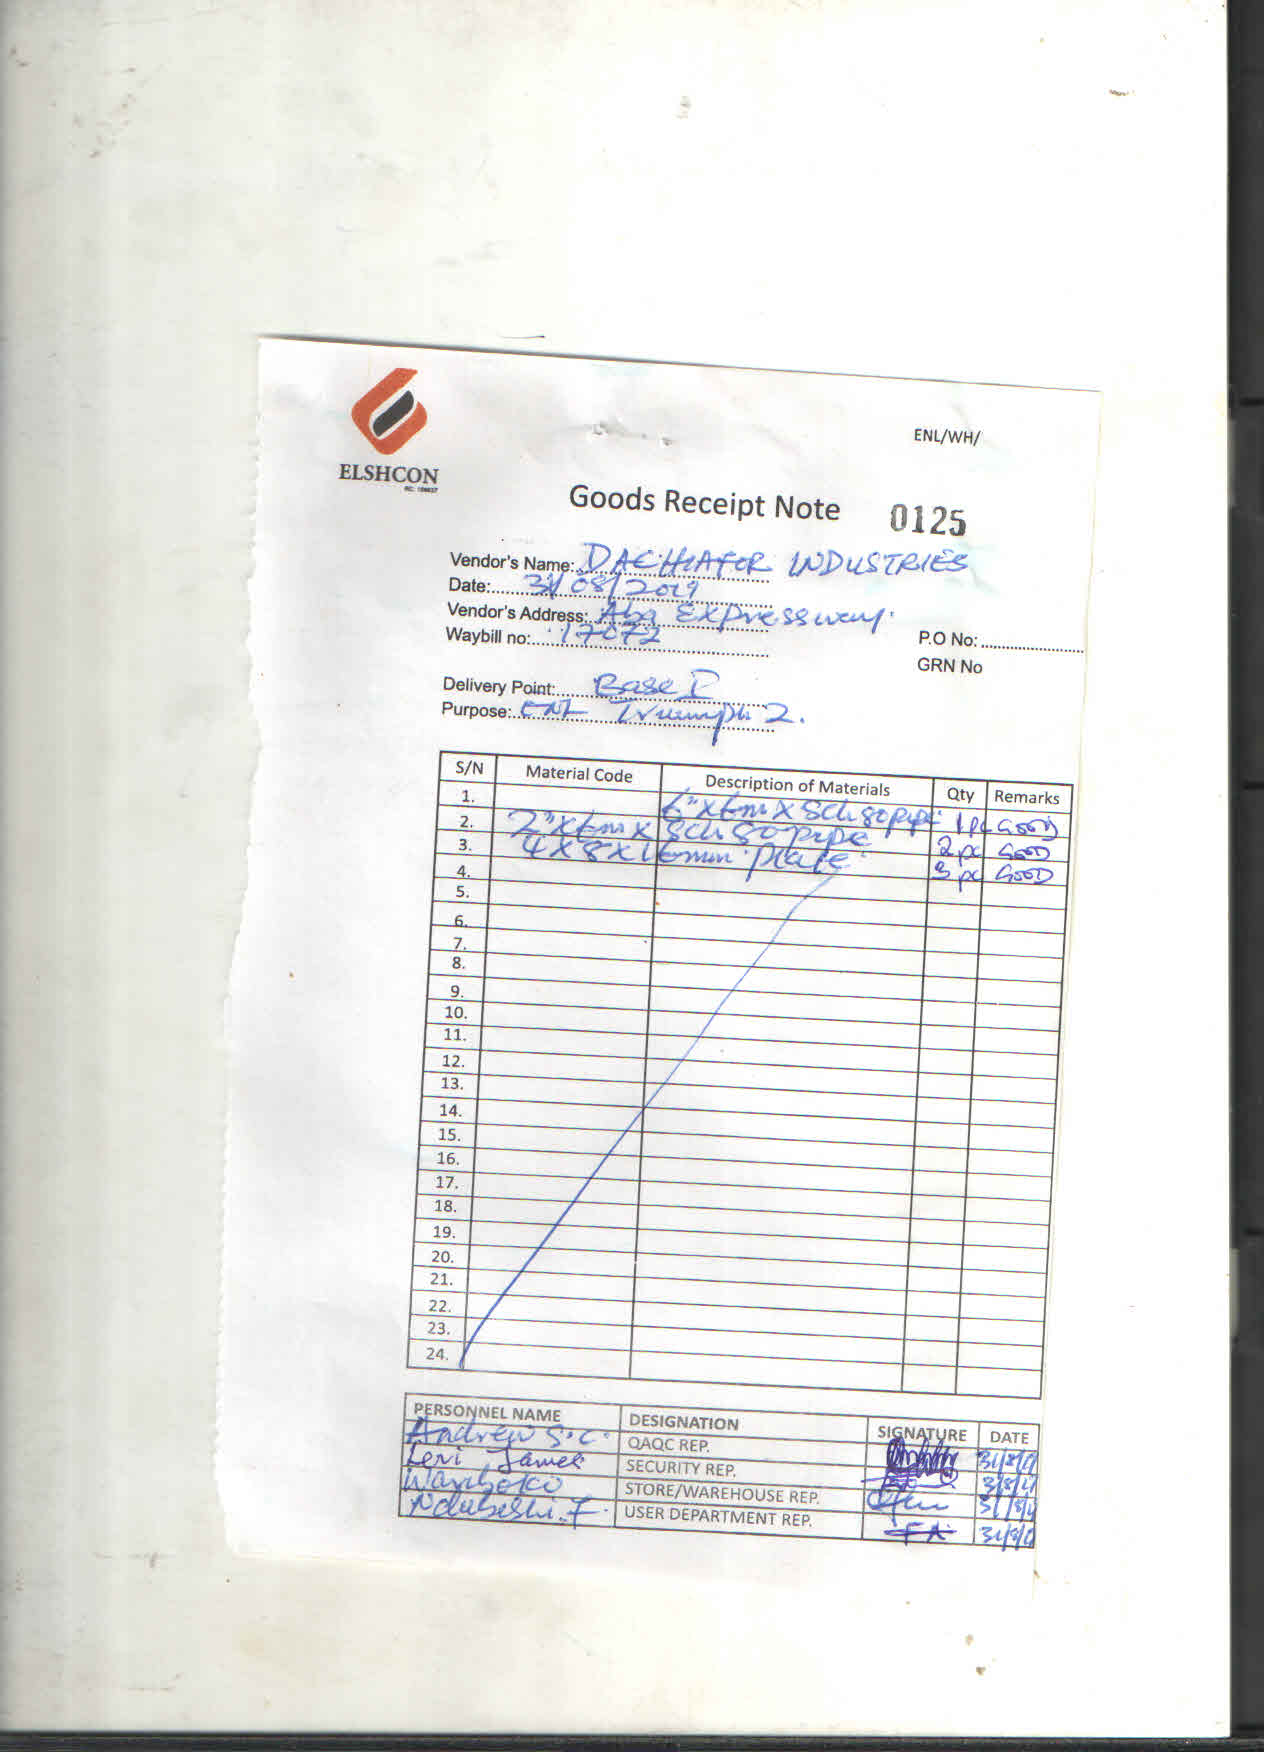 ELSHCON
RC: 156637
ENL/WH/
Goods Receipt Note 0125
Vendor's Name: DACHIAFOR INDUSTRIES
Date: 31/08/2019
Vendor's Address: Aba Expressway.
Waybill no: 17072
P.O No:
GRN No
Delivery Point: Base I
Purpose: ENL Triumph 2.
S/N Material Code Description of Materials Qty Remarks
1. 6"x6m x Sch 80 pipe 1pc GOOD
2. 2"x6m x Sch 80 pipe 2pc GOOD
3. 4x8x16mm plate 3pc GOOD
4.
5.
6.
7.
8.
9.
10.
11.
12.
13.
14.
15.
16.
17.
18.
19.
20.
21.
22.
23.
24.
PERSONNEL NAME DESIGNATION SIGNATURE DATE
Andrew S.C. QAQC REP.
Levi James SECURITY REP.
Wariboko STORE/WAREHOUSE REP.
Ndubeshi. F. USER DEPARTMENT REP.